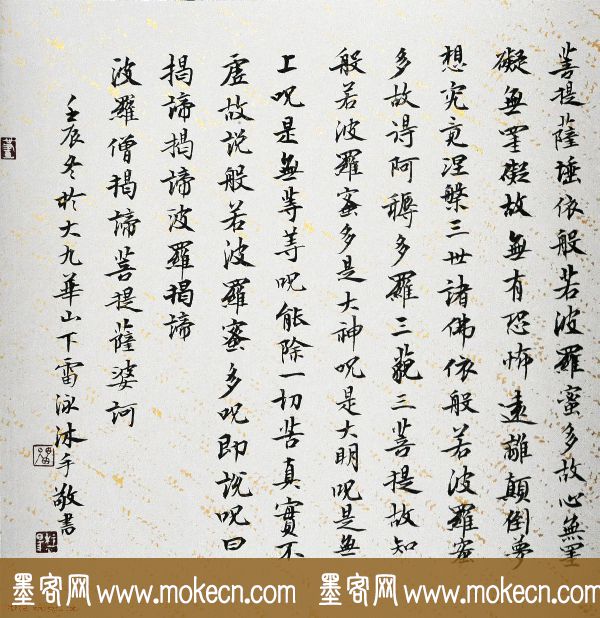 菩提薩埵依般若波羅蜜多故心無罣
礙無罣礙故無有恐怖遠離顛倒夢
想究竟涅槃三世諸佛依般若波羅蜜
多故得阿耨多羅三藐三菩提故知
般若波羅蜜多是大神呪是大明呪是無
上呪是無等等呪能除一切苦真實不
虛故說般若波羅蜜多呪即說呪曰
揭諦揭諦波羅揭諦
波羅僧揭諦菩提薩婆訶
壬辰冬於大九華山下雷泳沐手敬書
墨客网 www.mokecn.com 墨客网 www.mokecn.com